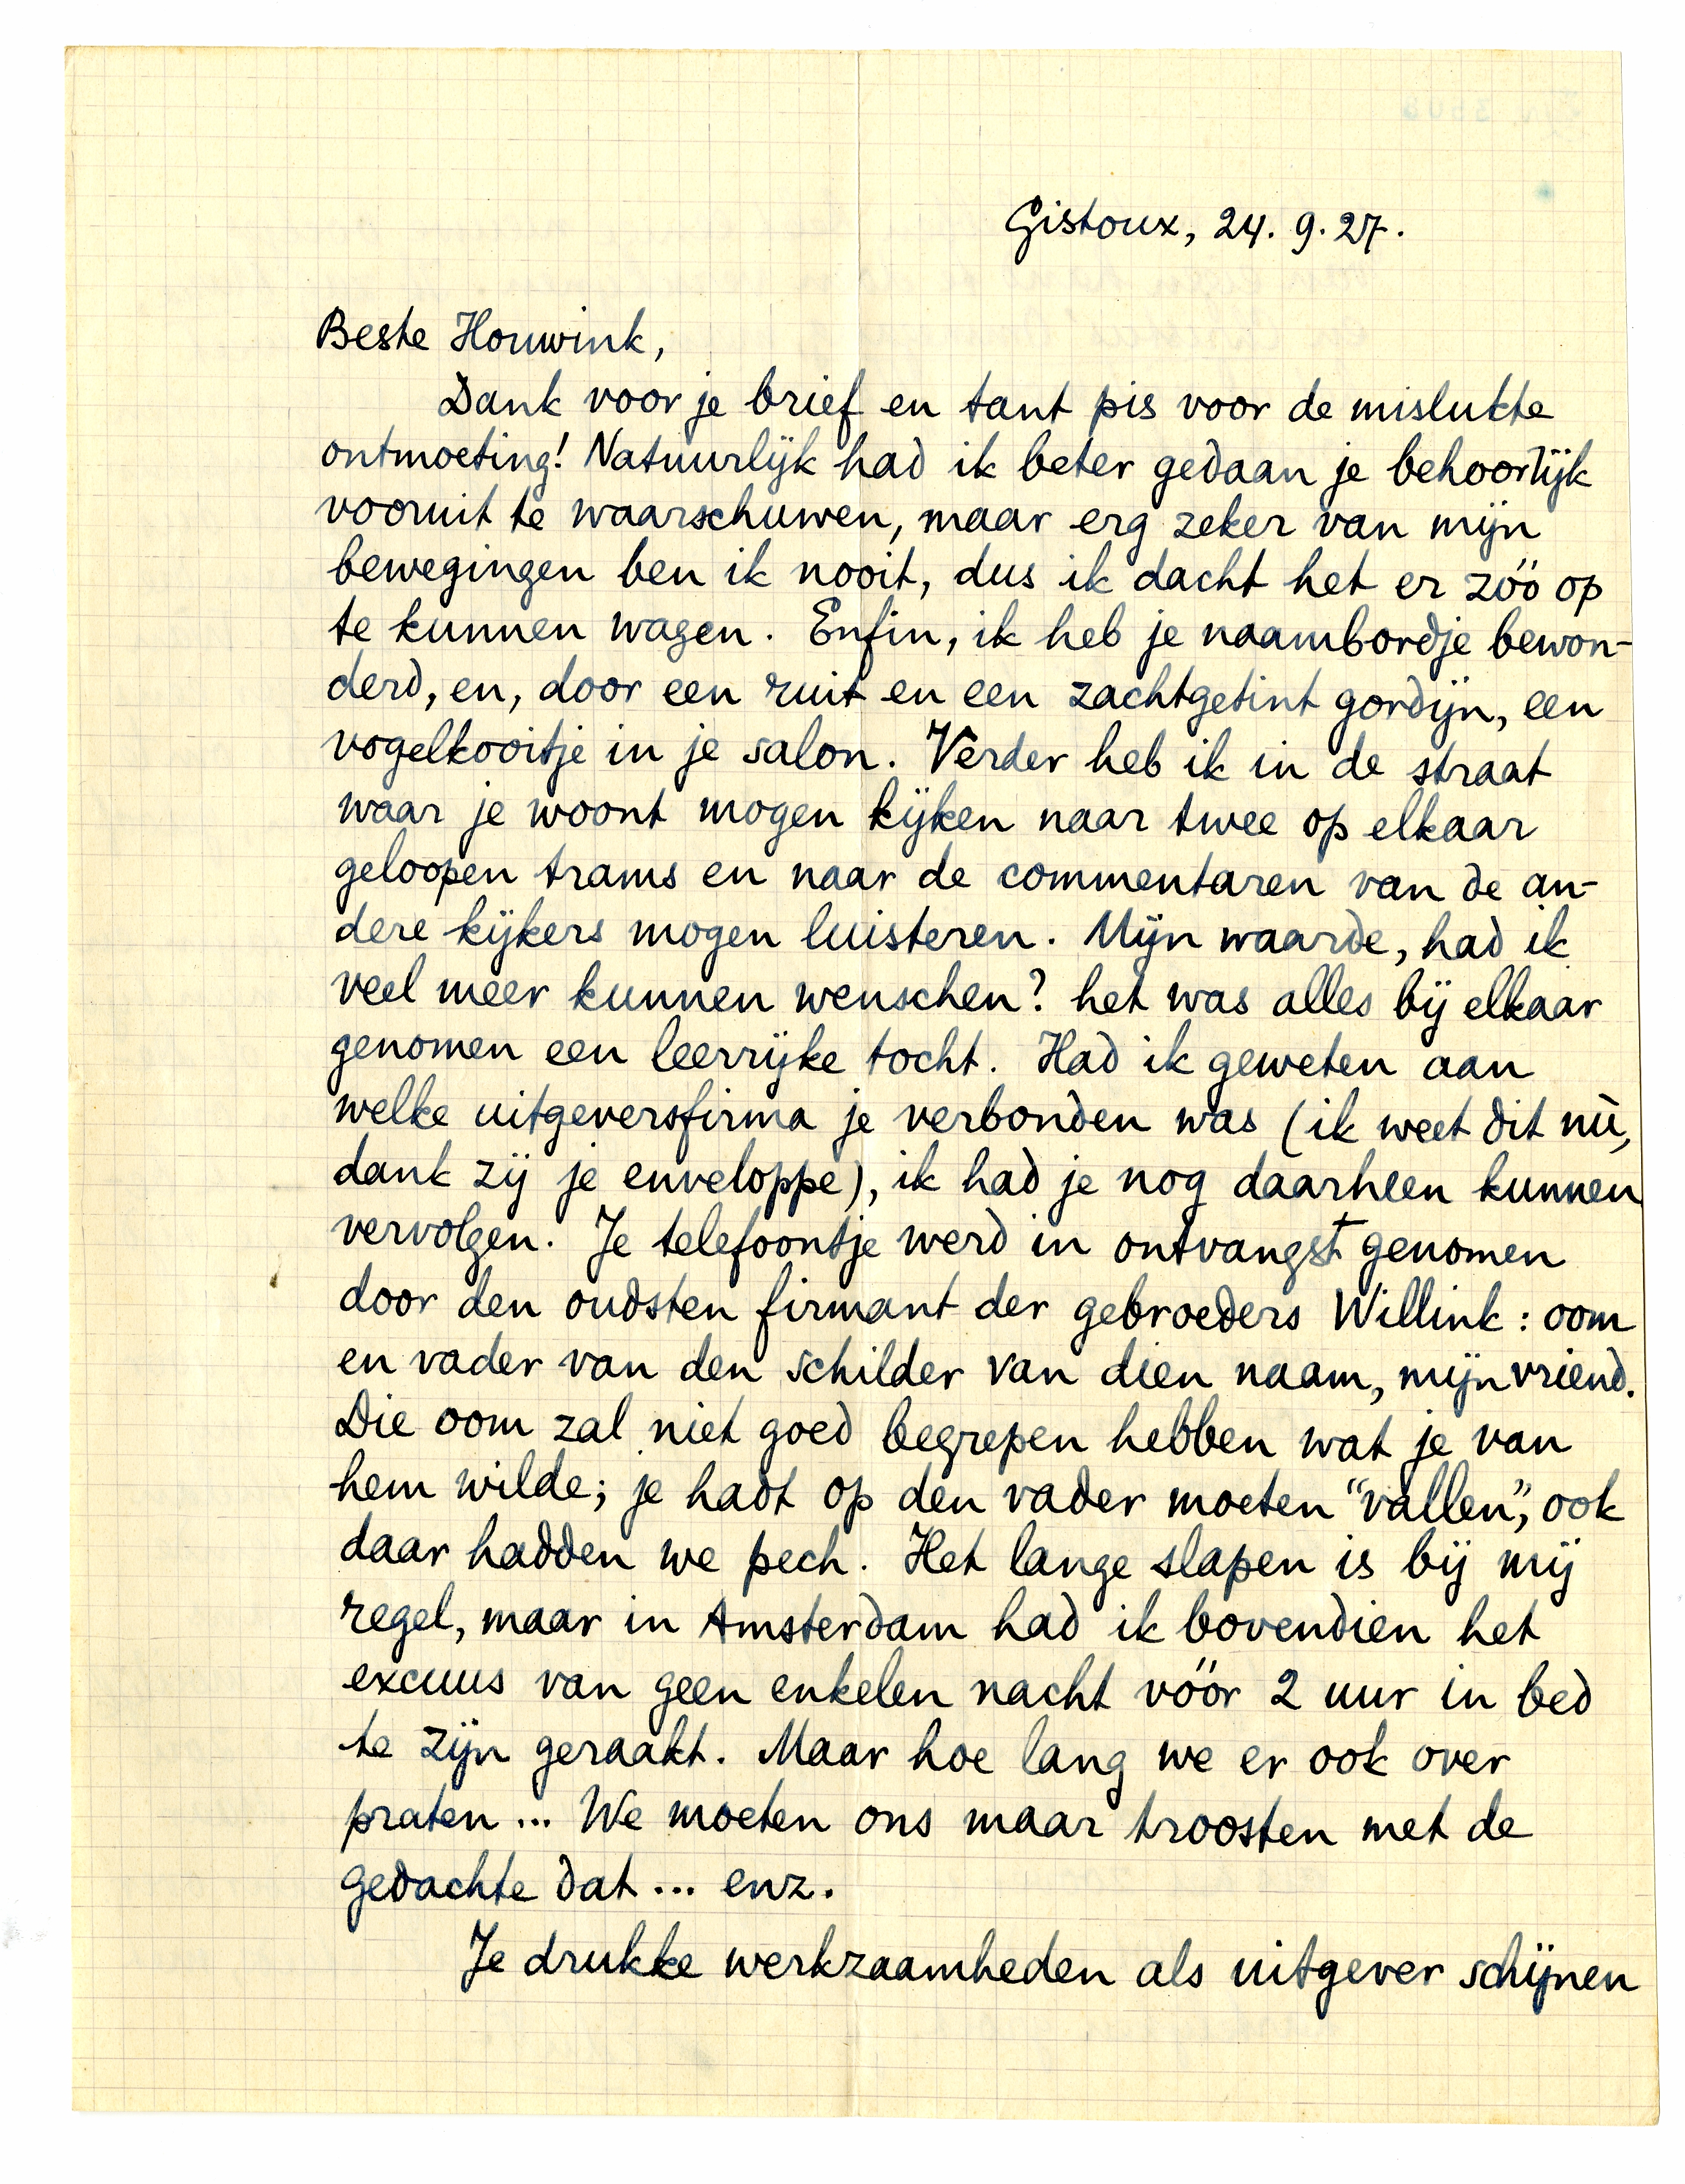 Gistoux, 24. 9. 27.
Beste Houwink,
Dank voor je brief en tant pis voor de mislukte
ontmoeting! Natuurlijk had ik beter gedaan je behoorlijk
vooruit te waarschuwen, maar erg zeker van mijn
bewegingen ben ik nooit, dus ik dacht het er zóó op
te kunnen wagen. Enfin, ik heb je naambordje bewon-
derd, en, door een ruit en een zachtgetint gordijn, een
vogelkooitje in je salon. Verder heb ik in de straat
waar je woont mogen kijken naar twee op elkaar
geloopen trams en naar de commentaren van de an-
dere kijkers mogen luisteren. Mijn waarde, had ik
veel meer kunnen wenschen? het was alles bij elkaar
genomen een leerrijke tocht. Had ik geweten aan
welke uitgeversfirma je verbonden was (ik weet dit nù,
dank zij je enveloppe), ik had je nog daarheen kunnen
vervolgen. Je telefoontje werd in ontvangst genomen
door den oudsten firmant der gebroeders Willink: oom
en vader van den schilder van dien naam, mijn vriend.
Die oom zal niet goed begrepen hebben wat je van
hem wilde; je hadt op den vader moeten “vallen”, ook
daar hadden we pech. Het lange slapen is bij mij
regel, maar in Amsterdam had ik bovendien het
excuus van geen enkelen nacht vóór 2 uur in bed
te zijn geraakt. Maar hoe lang we er ook over
praten... We moeten ons maar troosten met de
gedachte dat... enz.
Je drukke werkzaamheden als uitgever schijnen